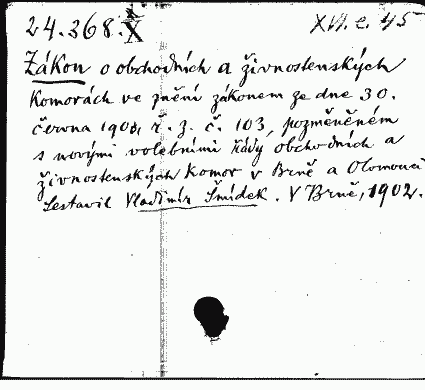 24.368. X XVI. e. 45
Zákon o obchodních a živnostenských
komorách ve znění zákonem ze dne 30.
června 1901, ř. z. č. 103, pozměněném
s novými volebními řády obchodních a
živnostenských komor v Brně a Olomouci
Sestavil Vladimír Šmídek. V Brně, 1902.